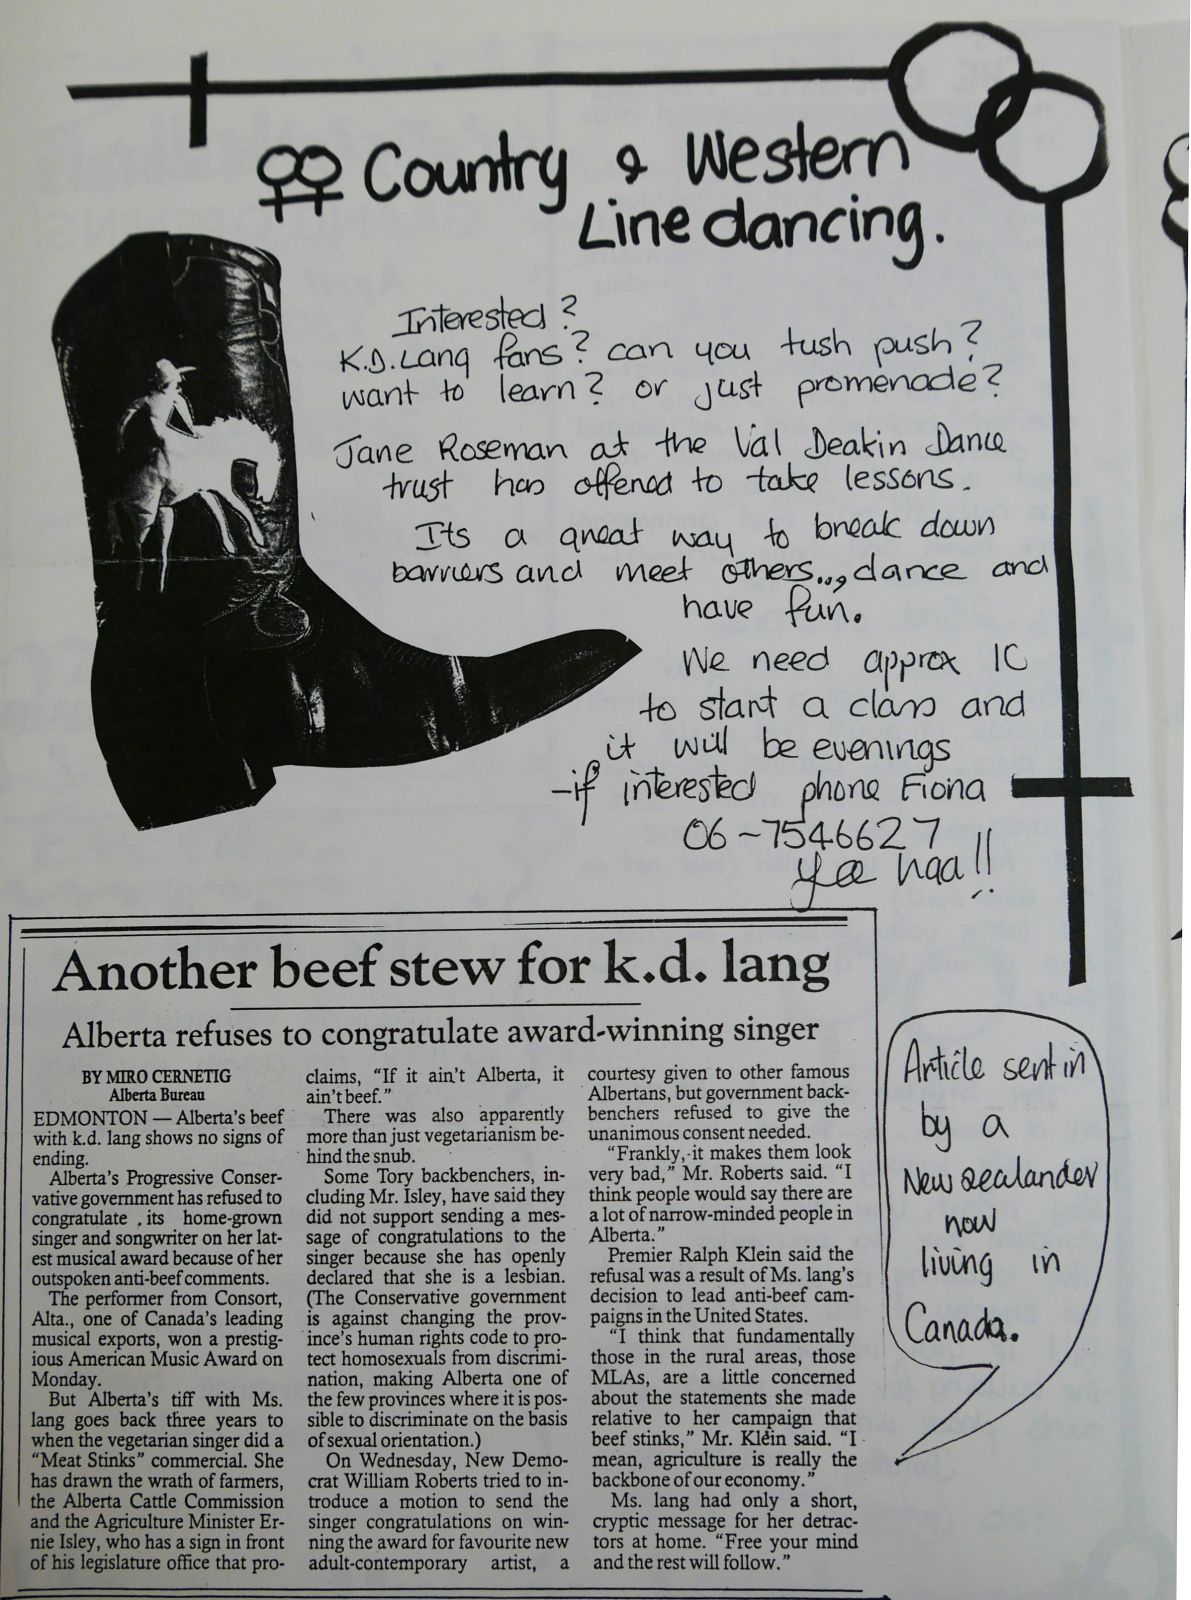 Country & Western
Line dancing.
Interested?
K.D. Lang fans? can you tush push?
want to learn? or just promenade?
Jane Roseman at the Val Deakin Dance
trust has offered to take lessons.
Its a great way to break down
barriers and meet others..., dance and
have fun.
We need approx 10
to start a class and
it will be evenings
-if interested phone Fiona
06-7546627
yee haa!!
Another beef stew for k.d. lang
Alberta refuses to congratulate award-winning singer
BY MIRO CERNETIG
Alberta Bureau
EDMONTON — Alberta's beef
with k.d. lang shows no signs of
ending.
Alberta's Progressive Conser-
vative government has refused to
congratulate its home-grown
singer and songwriter on her lat-
est musical award because of her
outspoken anti-beef comments.
The performer from Consort,
Alta., one of Canada's leading
musical exports, won a prestig-
ious American Music Award on
Monday.
But Alberta's tiff with Ms.
lang goes back three years to
when the vegetarian singer did a
"Meat Stinks" commercial. She
has drawn the wrath of farmers,
the Alberta Cattle Commission
and the Agriculture Minister Er-
nie Isley, who has a sign in front
of his legislature office that pro-
claims, "If it ain't Alberta, it
ain't beef."
There was also apparently
more than just vegetarianism be-
hind the snub.
Some Tory backbenchers, in-
cluding Mr. Isley, have said they
did not support sending a mes-
sage of congratulations to the
singer because she has openly
declared that she is a lesbian.
(The Conservative government
is against changing the prov-
ince's human rights code to pro-
tect homosexuals from discrimi-
nation, making Alberta one of
the few provinces where it is pos-
sible to discriminate on the basis
of sexual orientation.)
On Wednesday, New Demo-
crat William Roberts tried to in-
troduce a motion to send the
singer congratulations on win-
ning the award for favourite new
adult-contemporary artist, a
courtesy given to other famous
Albertans, but government back-
benchers refused to give the
unanimous consent needed.
"Frankly, it makes them look
very bad," Mr. Roberts said. "I
think people would say there are
a lot of narrow-minded people in
Alberta."
Premier Ralph Klein said the
refusal was a result of Ms. lang's
decision to lead anti-beef cam-
paigns in the United States.
"I think that fundamentally
those in the rural areas, those
MLAs, are a little concerned
about the statements she made
relative to her campaign that
beef stinks," Mr. Klein said. "I
mean, agriculture is really the
backbone of our economy."
Ms. lang had only a short,
cryptic message for her detrac-
tors at home. "Free your mind
and the rest will follow."
Article sent in
by a
New zealander
now
living in
Canada.